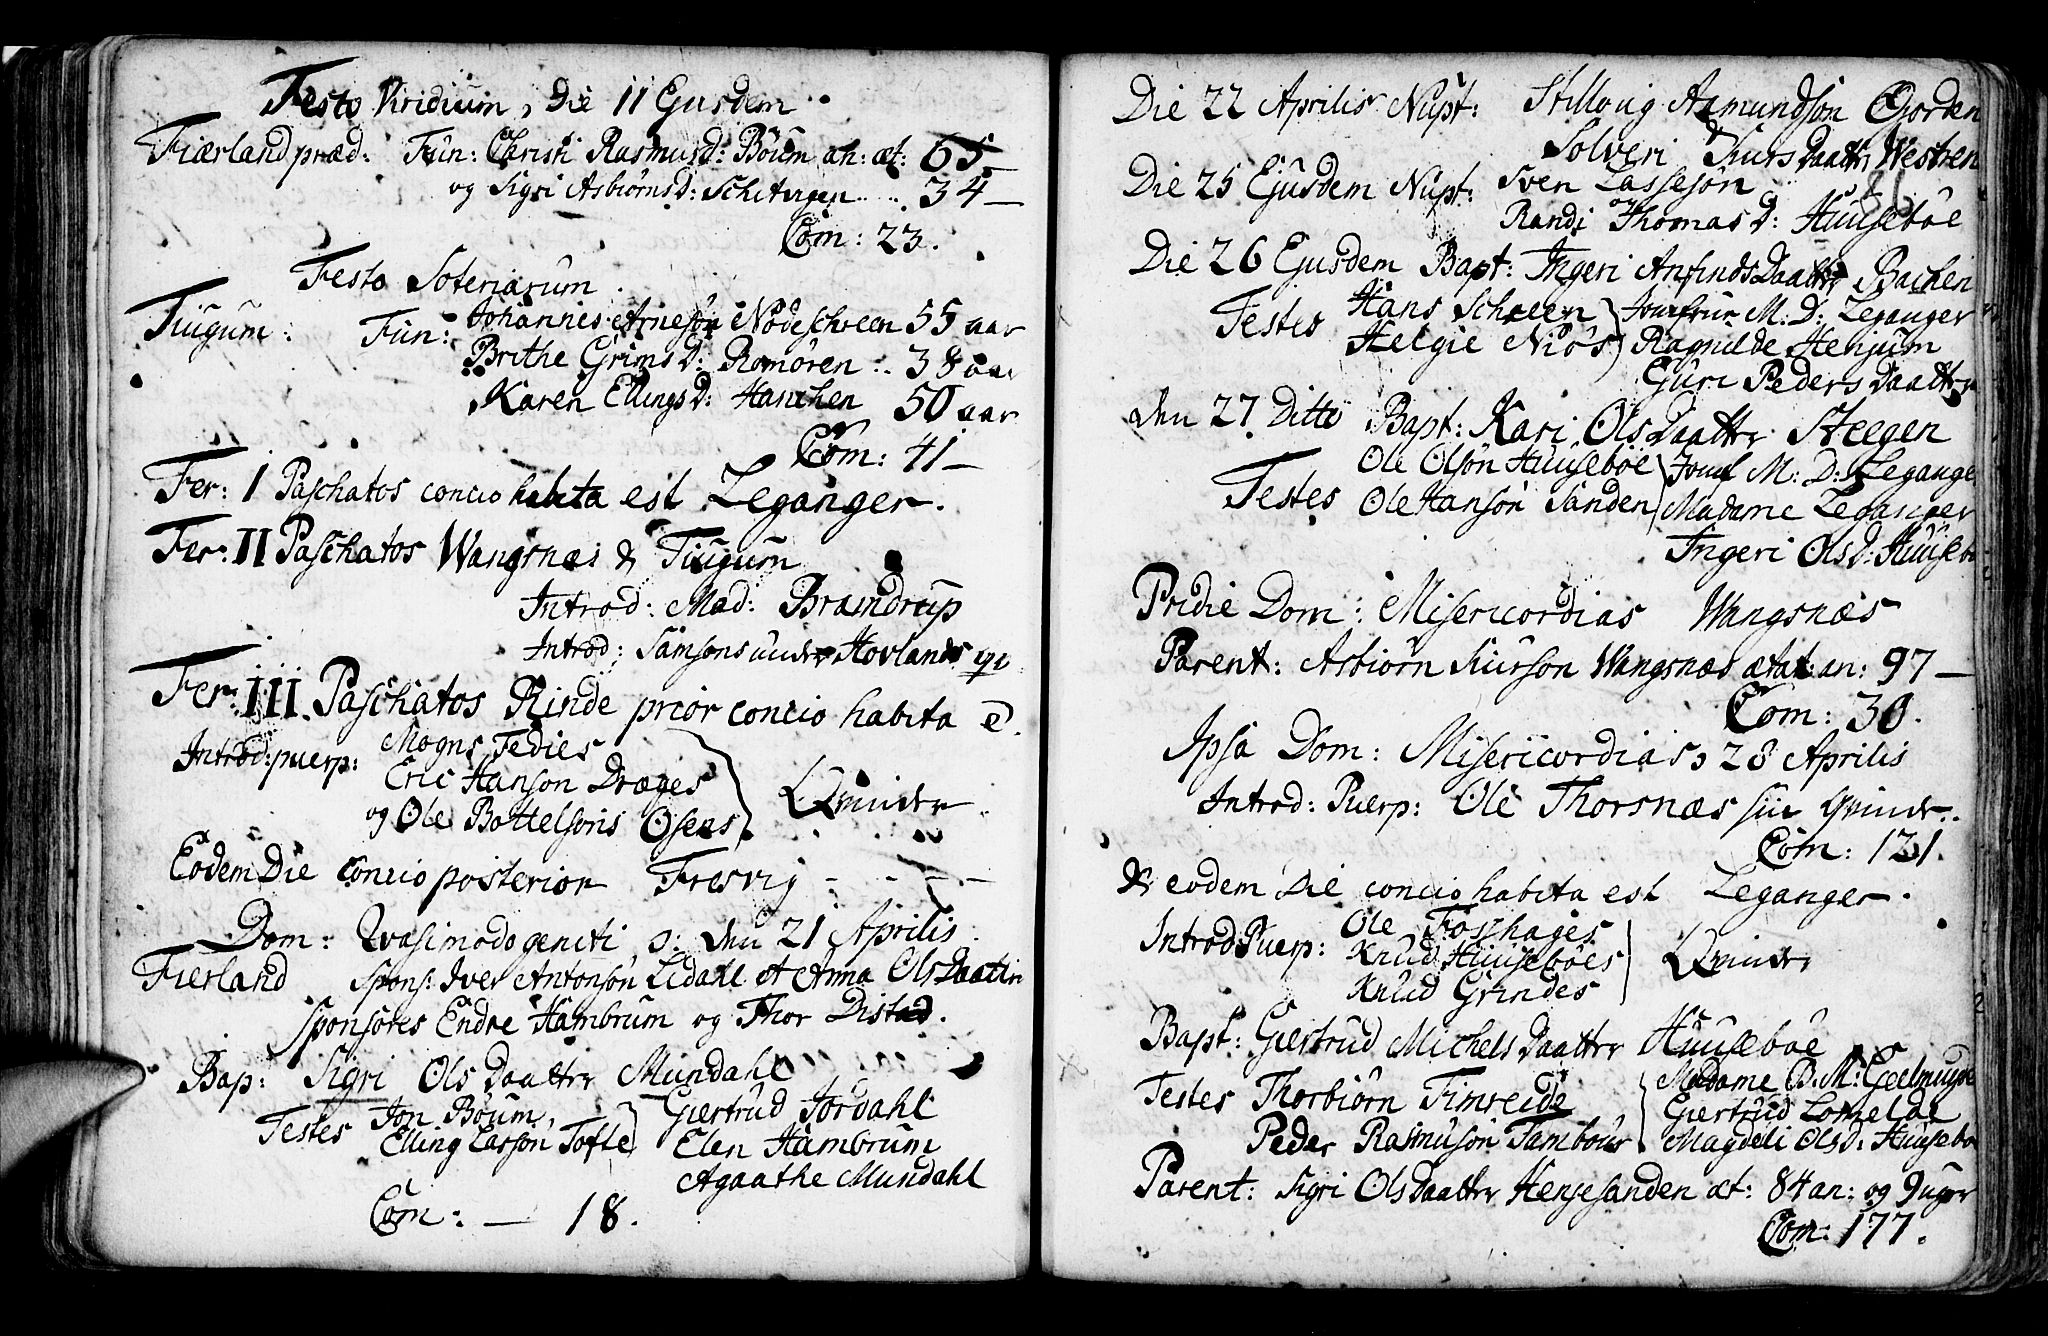 Festo Viridium, Die 11 Ejusdem
Fierland præd: Fün: Christi Rasmusd: Böüm an: æt: 65
og Sigri AsbiörnsD: 34
Com: 23.
Festo Soteriarum
Tiugum: Fün: Johannis Arnesön Nödeschreen 55 aar
Brithe GrimsD: Romören 38 aar
Karen EllingsD: Hanchen 50 aar
Com: 41
Fer: I Paschatos concio habita est Leganger.
Fer: II Paschatos Wangsnæs & Tiugum
Introd: Mad: Bramdrup
Introd: Samsons under Hovland
Fer: III Paschatos Rinde prior concio habita e.
Introd: puerp: Mogns Tedies
Eric Hanson Dræges
og Ole Bottelsons Osens Qvinder
Eodem Die concio posterior Fresvig
Dom: Qvasimodogeniti o: den 21 Aprilis
Fierland Spons: Iver Antonsön Lidahl et Anna OlsDaatter
Sponsores Endre Hambrum og Thor Distad.
Bap: Sigri Ols Daatter Mundahl
Testes Jon Böum, Giertrud Jordahl
Elling Larsön Tofte Elen Hambrum
Agaathe Mundahl
Com: — 18.
Die 22 Aprilis Nupt: Stillvig Aamundsön Gjorden
& Solveri SiursDaatter Westren
Die 25 Ejusdem Nupt: Sven Lassesön
og Randi ThomasD: Huuseböe
Die 26 Ejusdem Bapt: Ingeri AnfindsDaatter Bachen
Testes Hans Schreen Jomfrur M: D: Leganger
Helgie Niös Ragnilde Hensum
Guri PedersDaatter
Den 27 Ditto Bapt: Kari OlsDaatter Steegen
Ole Olsön Huuseböe Jomf M: D: Legange
Testes Ole Hansön Sanden Madame Leganger
Ingeri OlsD: Huusebö
Pridie Dom: Misericordias Wangsnæs
Parent: Asbiörn Siurson Wangsnæs ætat: an: 97
Com: 30.
Ipsa Dom: Misericordias, 28 Aprilis
Introd: Puerp: Ole Thorsnæs sin Qvinde.
Com: 121.
& eodem Die concio habita est Leganger.
Introd Puerp: Ole Foshages
Knud Huuseböes Qvinder
Knud Grindes
Bapt: Giertrud MichelsDaatter Huuseböe
Testes Thorbiörn Timreide Madame B. M: Geelmuyde
Giertrud Lomelde
Peder Rasmusön Tambour Magdeli OlsD: Huusebö
Parent: Sigri OlsDaatter Hensesanden æt: 84 an: og 9 uger
Com: 177.